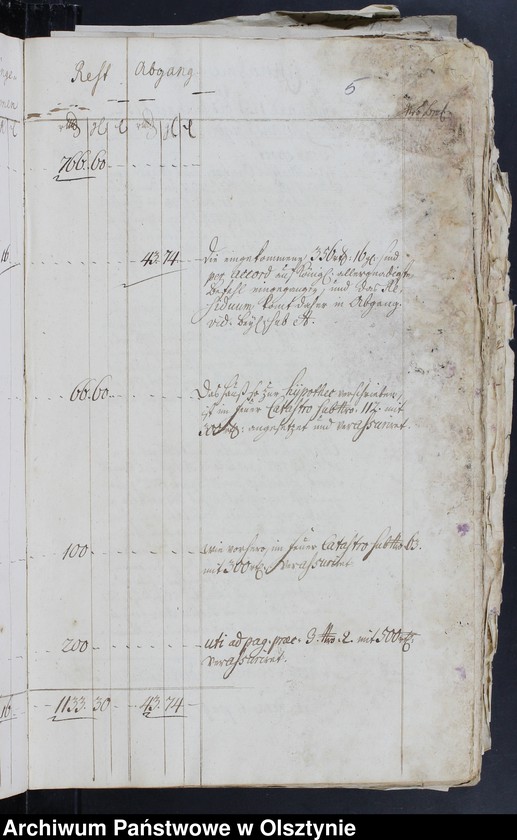 Rest Abgang
5
766. 60
16 43. 74. Die eingekommene 356 rtl: 16 gl. sind
per accord auf Königl: allergnädigst
Befehl eingegangen, und das Re-
siduum komt daher in Abgang.
vid. Beyl: sub A.
66. 60 Das Hauß so zur Hypothec verschrieben,
ist im Feuer Catastro sub Nro. 117. mit
300 rtl: angesetzet und verassuriret.
100 wie vorhero, im Feuer Catastro sub Nro 63.
mit 300 rtl. verassuriret
200 uti ad pag. præc. 3. Nro. 2. mit 500 rtl.
verassuriret.
16 1133. 30 43. 74
Archiwum Państwowe w Olsztynie